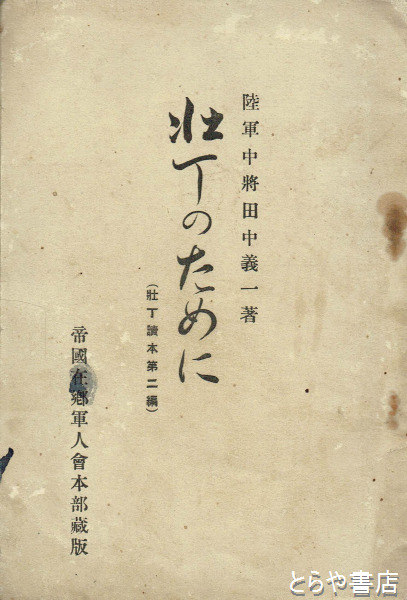 陸軍中將田中義一著
壯丁のために
(壯丁讀本第二編)
帝國在鄕軍人會本部藏版
とらや書店